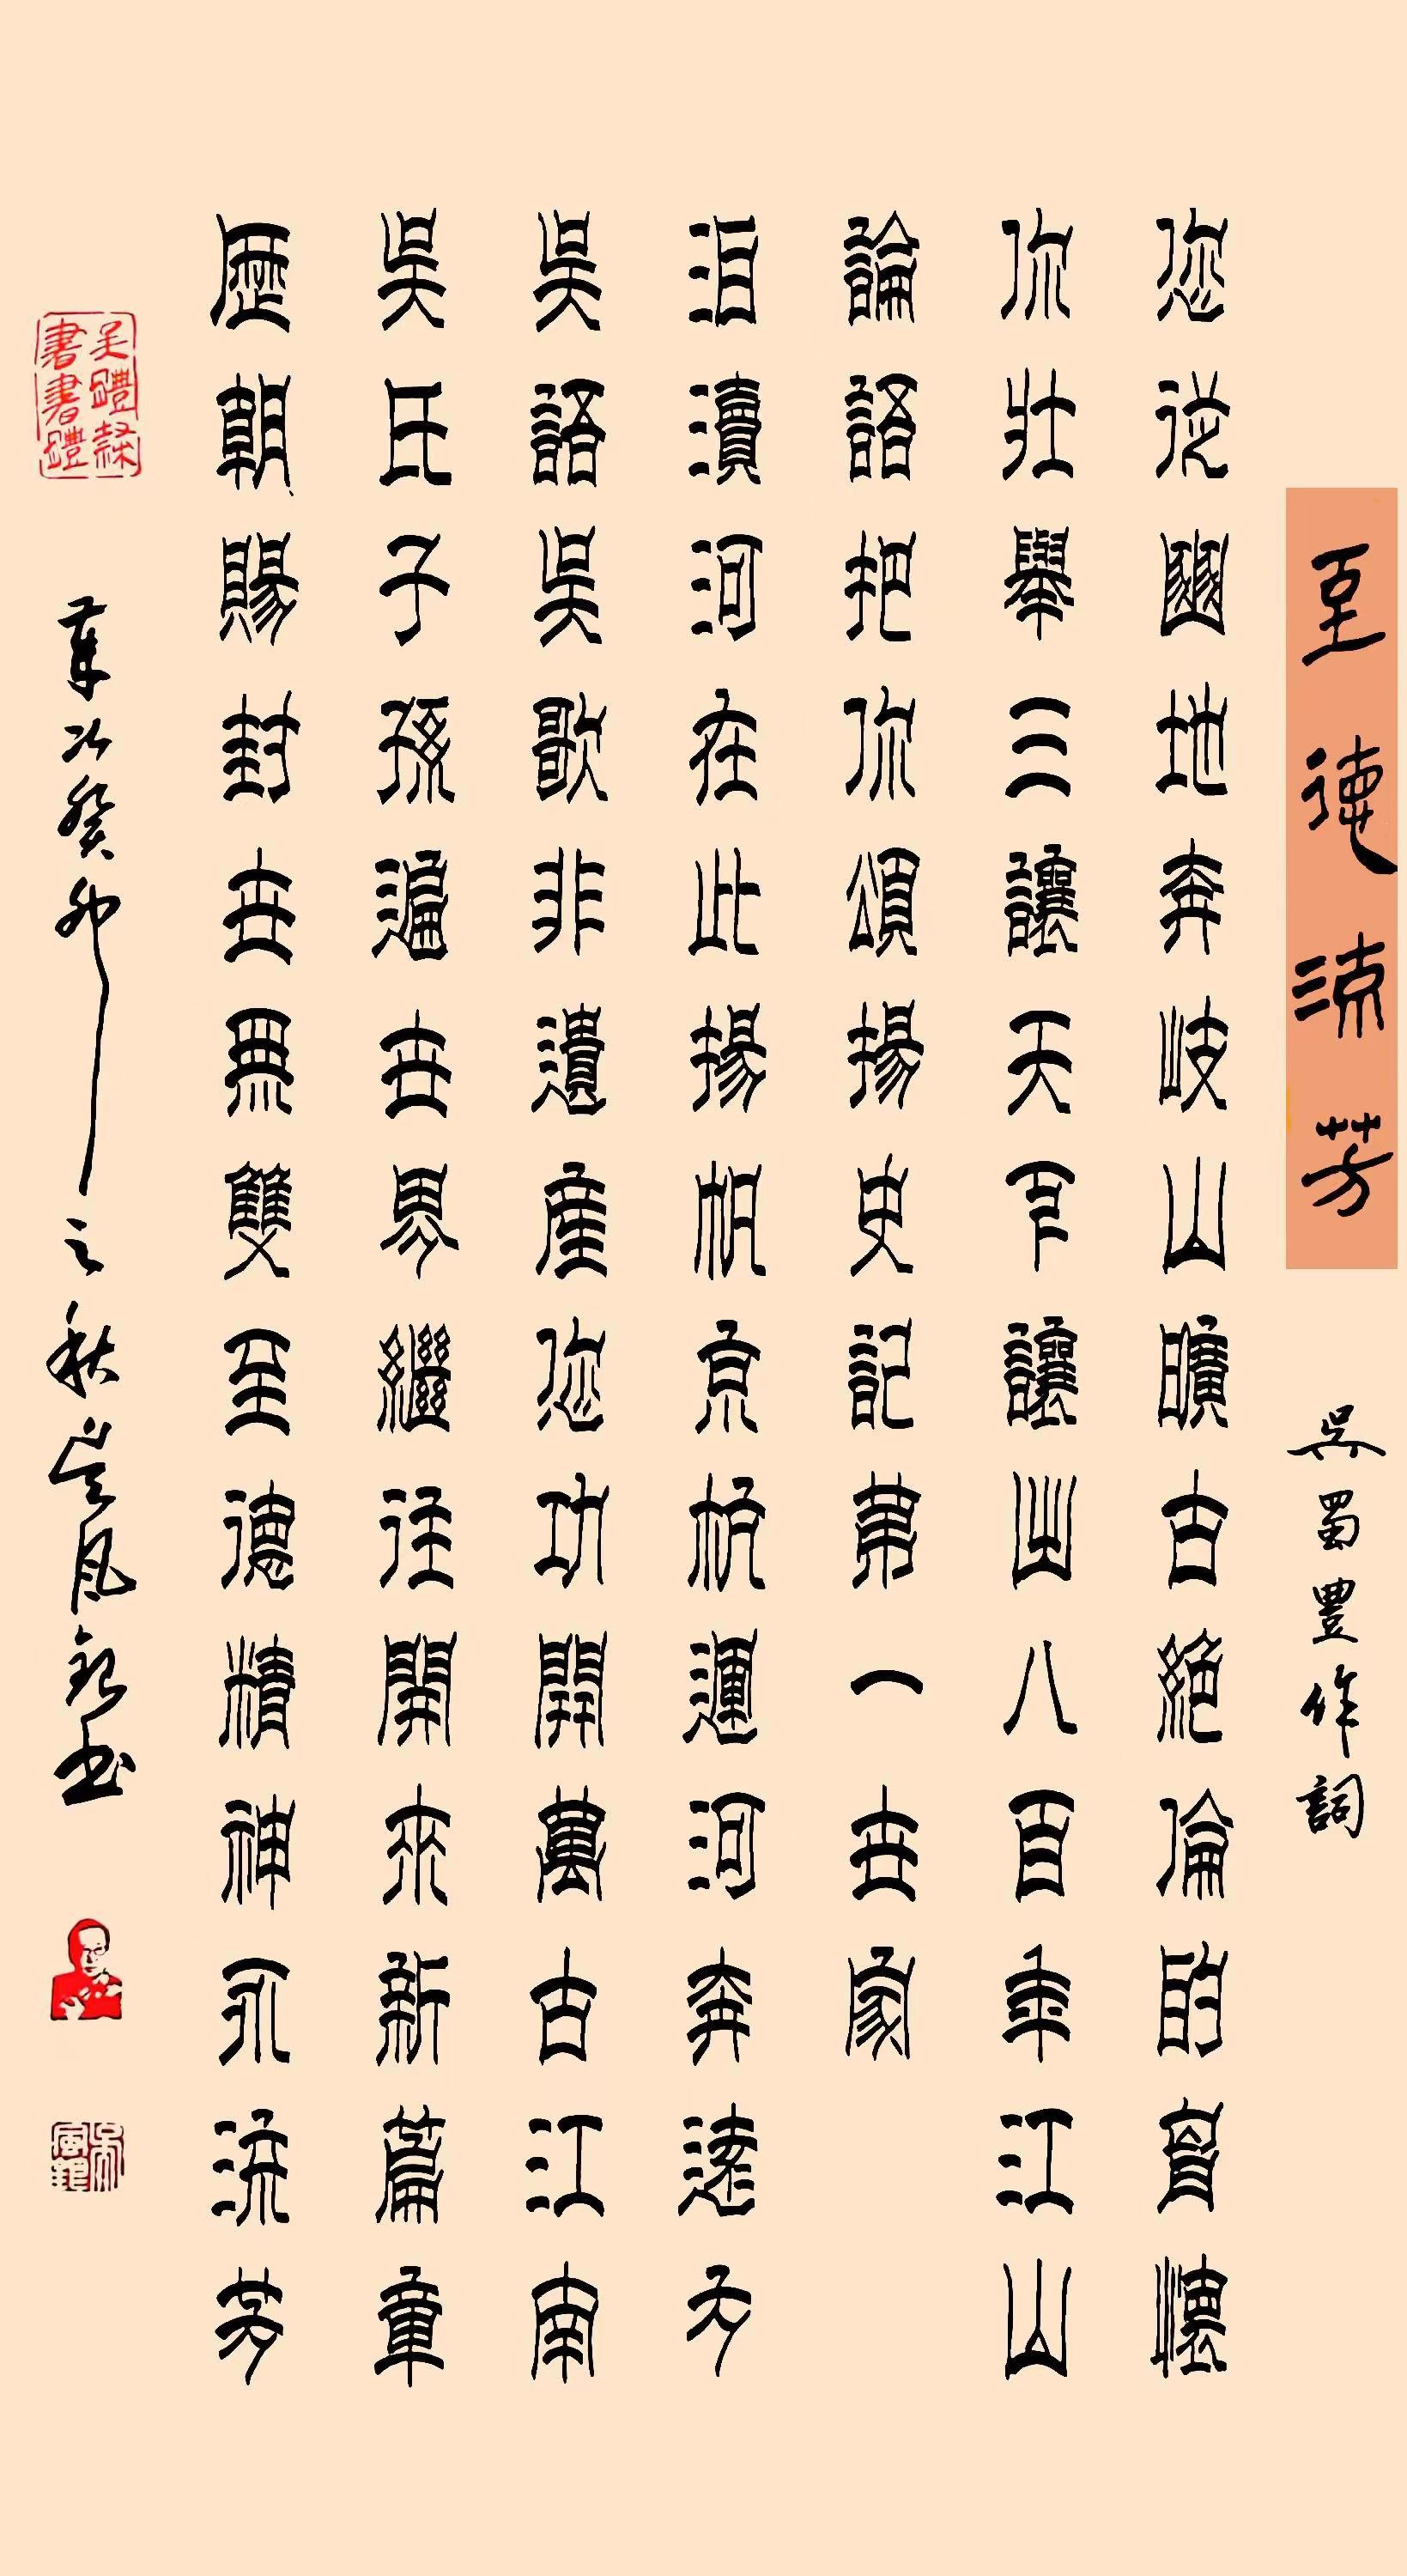 至德流芳 吳蜀豊作詞
您從豳地奔岐山曠古絕倫的胸懷
你壯舉三讓天下讓出八百年江山
論語把你頌揚史記第一世家
泪瀆河在此揚帆京杭運河奔遠方
吳語吳歌非遺產您功開萬古江南
吳氏子孫遍世界繼往開來新篇章
歷朝賜封世無雙至德精神永流芳
癸卯之秋吳風 書